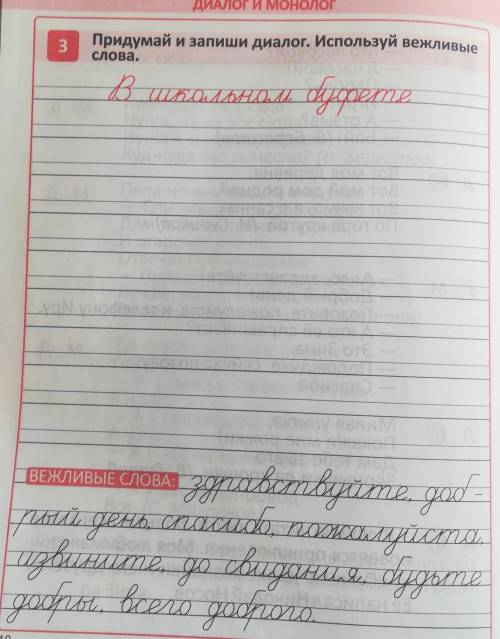 ДИАЛОГ И МОНОЛОГ
3 Придумай и запиши диалог. Используй вежливые
слова.
В школьном буфете
ВЕЖЛИВЫЕ СЛОВА: здравствуйте, доб-
рый день, спасибо, пожалуйста,
извините, до свидания, будьте
добры, всего доброго.